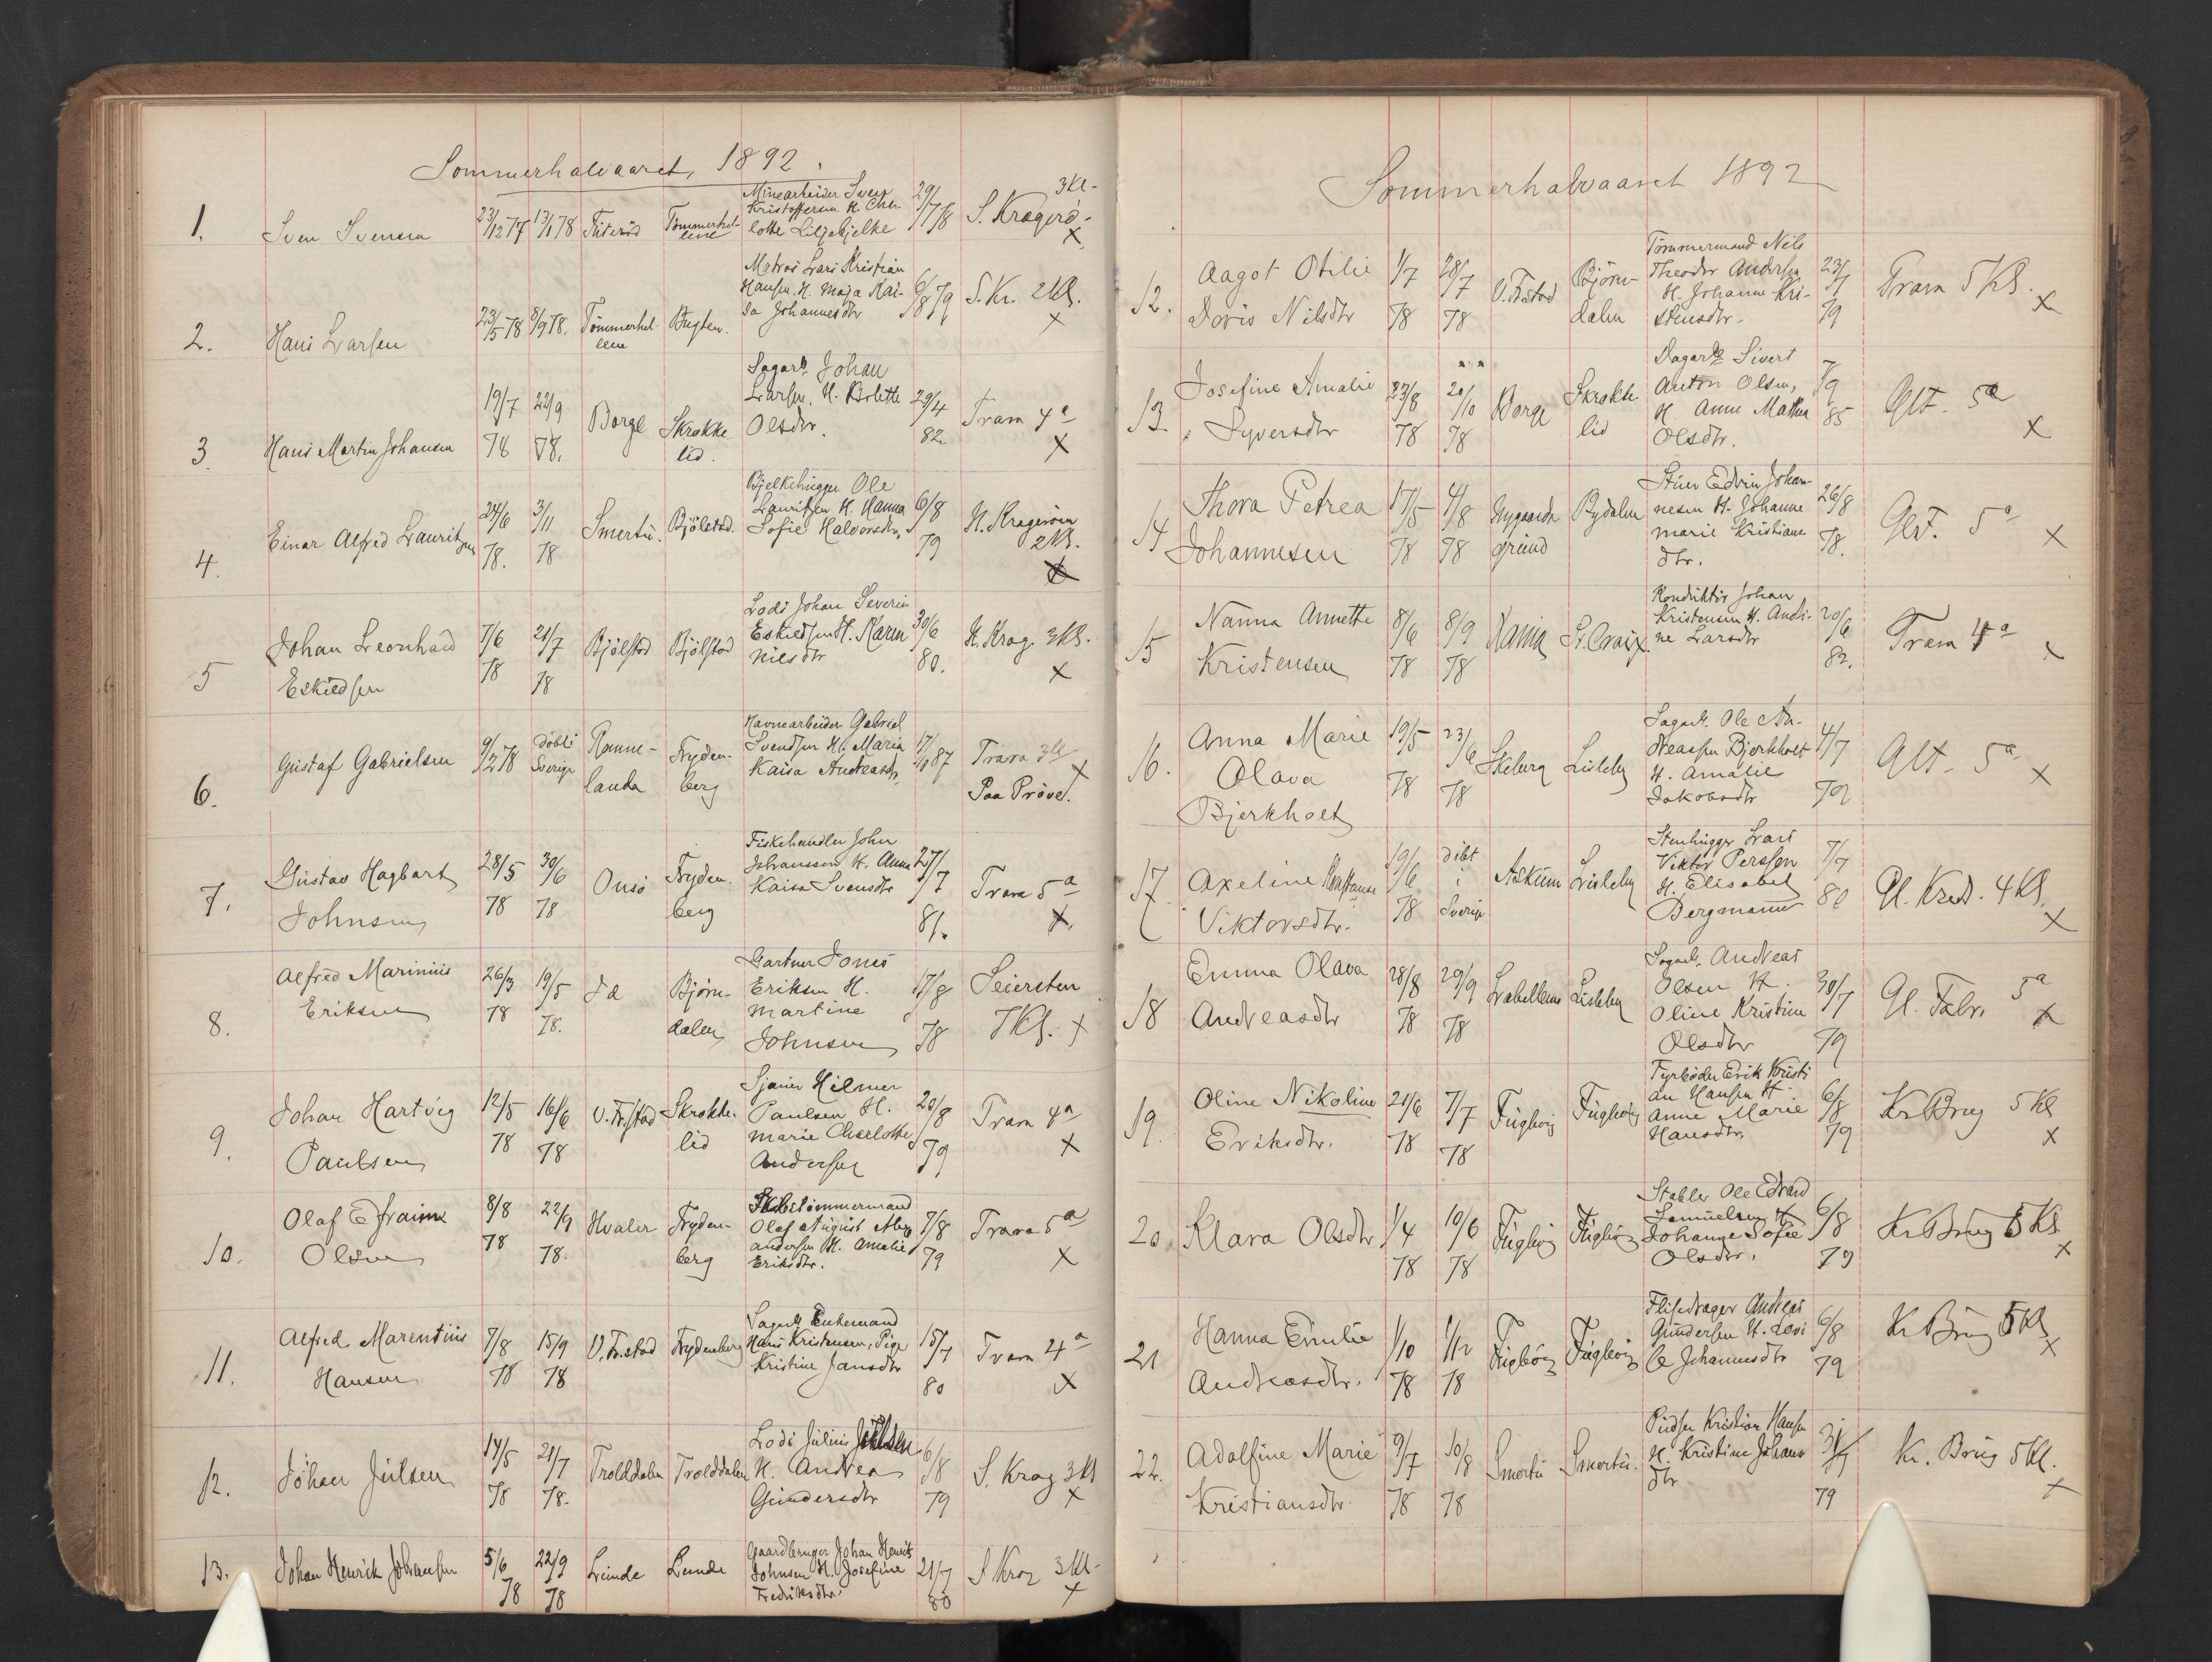 Sommerhalvaaret, 1892.
1. Sven Svensen 23/12 77 13/1 78 Tømmerhellene Minearbeider Sven Kristoffersen H. Charlotte Liljebjelke 29/7 78 S. Kragerø 3 Kl. X
2. Hans Larsen 23/5 78 8/9 78. Tømmerhellene Bugten. Matros Lars Kristian Hansen. H. Maja Kaisa Johannesdtr 6/8 79 S. Kr. 2 Kl. X
3. Hans Martin Johansen 19/7 78 22/9 78. Borge Skrokkelid. Sagarb. Johan Larsen, H. Bolette Olsdtr. 29/4 82. Trara 4a X
4. Einar Alfred Lauritzen 24/6 78. 3/11 78 Smertu. Bjølstad. Bjelkehugger Ole Lauritzen H. Hanna Sofie Halvorsdtr, 6/8 79 N. Kragerøen 2 Kl. X
5 Johan Leonhard Eskildsen 7/6 78 21/7 78 Bjølstad Bjølstad Lods Johan Severin Eskildsen H. Karen Nilsdtr 30/6 80. N. Krag. 3 Kl. X
6. Gustaf Gabrielsen 9/2 78 døbt i Sverige Rannelanda Frydenberg Havnearbeider Gabriel Svendsen H. Maria Kaisa Andreasdtr 17/10 87 Trara 3 Kl X Paa Prøve.
7. Gustav Hagbart Johnsen 28/5 78 30/6 78 Onsø Frydenberg Fiskehandler John Johanssen H. Anna Kaisa Svensdtr 27/7 81. Trara 5a X.
8. Alfred Marinius Eriksen 26/3 78 19/5 78. Id Bjørndalen Gartner Jones Eriksen H. Martine Johnsen 17/8 78 Seiersten 7 Kl. X
9. Johan Hartvig Paulsen 12/5 78 16/6 78 V. Fr.stad Skrokkelid Sjauer Hilmer Paulsen H. Marie Charlotte Andersen 20/8 79 Trara 4a X
10. Olaf Efraim Olsen 8/8 78 22/9 78. Hvaler Frydenberg Skibstømmermand Olaf August Andersen H. Amalie Eriksdtr. 7/8 79 Trara 5a X
11. Alfred Marentius Hansen 7/8 78 15/9 78 V. Fr.stad Frydenberg Sagarb. Enkemand Hans Kristensen, Pige Kristine Jansdtr 15/7 80 Trara 4a X
12. Johan Julsen 14/5 78 21/7 78. Trolddalen Trolddalen Lods Julius H. Andrea Gundersdtr 6/8 79 S. Krag 3 Kl X
13. Johan Henrik Johansen 5/6 78 22/9 78 Lunde Lunde Gaardbruger Johan Henrik Johnsen H. Josefine Fredriksdtr. 21/7 80 S Krag 3 Kl. X
Sommerhalvaaret 1892
12. Aagot Otilie Doris Nilsdtr 1/7 78 28/7 78 V. Fr.stad Bjørndalen Tømmermand Nils Theodor Andersen H. Johanne Kristensdtr. 23/7 79 Trara 5 Kl. X
13. Josefine Amalie Syversdtr 23/8 78 20/10 78 Borge Skrokkelid Dagarb. Sivert Anton Olsen, H Anne Mathea Olsdtr. 7/9 85 Glt. 5a X
14 Thora Petrea Johannesen 17/5 78 4/8 78 Nygaardsgrund Bydalen Stuer Edvin Johannesen H. Johanne Marie Kristiansdtr. 26/8 78. Glt. 5a X
15 Nanna Annette Kristensen 8/6 78 8/9 78 St. Croix. Konduktør Johan Kristensen H. Andrine Larsdtr 20/6 82. Trara 4a X
16. Anna Marie Olava Bjerkholt 19/5 78 23/6 78 Skeberg Lisleby Sagarb. Ole Andreassen Bjerkholt H. Amalie Jakobsdtr 4/7 79 Glt. 5a X
17. Axeline Konstanse Viktorsdtr. 19/6 78 døbt i Sverige Askum Lisleby Stenhugger Lars Viktor Persson H. Elisabet Bergmann 7/7 80 Gl. Kred. 4 Kl. X
18 Emma Olava Andreasdtr 28/8 78 29/9 78 Labellens Lisleby Sagarb. Andreas Olsen H. Oline Kristine Olsdtr 30/7 79 Gl. Fabr. 5a X
19. Oline Nikoline Eriksdtr. 21/6 78 7/7 78 Fuglevig Fuglevig Fyrbøder Erik Kristian Hansen H. Anne Marie Hansdtr. 6/8 79 Kr Brug 5 Kl X
20 Klara Olsdtr 1/4 78 10/6 78 Fuglevig Fuglevig Stabler Ole Edvard Samuelsen H Johanne Sofie Olsdtr. 6/8 79 Kr Brug 5 Kl X
21 Hanna Emilie Andreasdtr. 1/10 78 1/12 78 Fuglevig Fuglevig Flisedrager Andreas Gundersen H. Lovise Johannesdtr 6/8 79 Kr Brug 5 Kl X
22. Adolfine Marie Kristiansdtr. 9/7 78 10/8 78 Smertu Smertu. Kristian Hansen H. Kristine Johansdtr 31/7 79 Kr. Brug 5 Kl. X